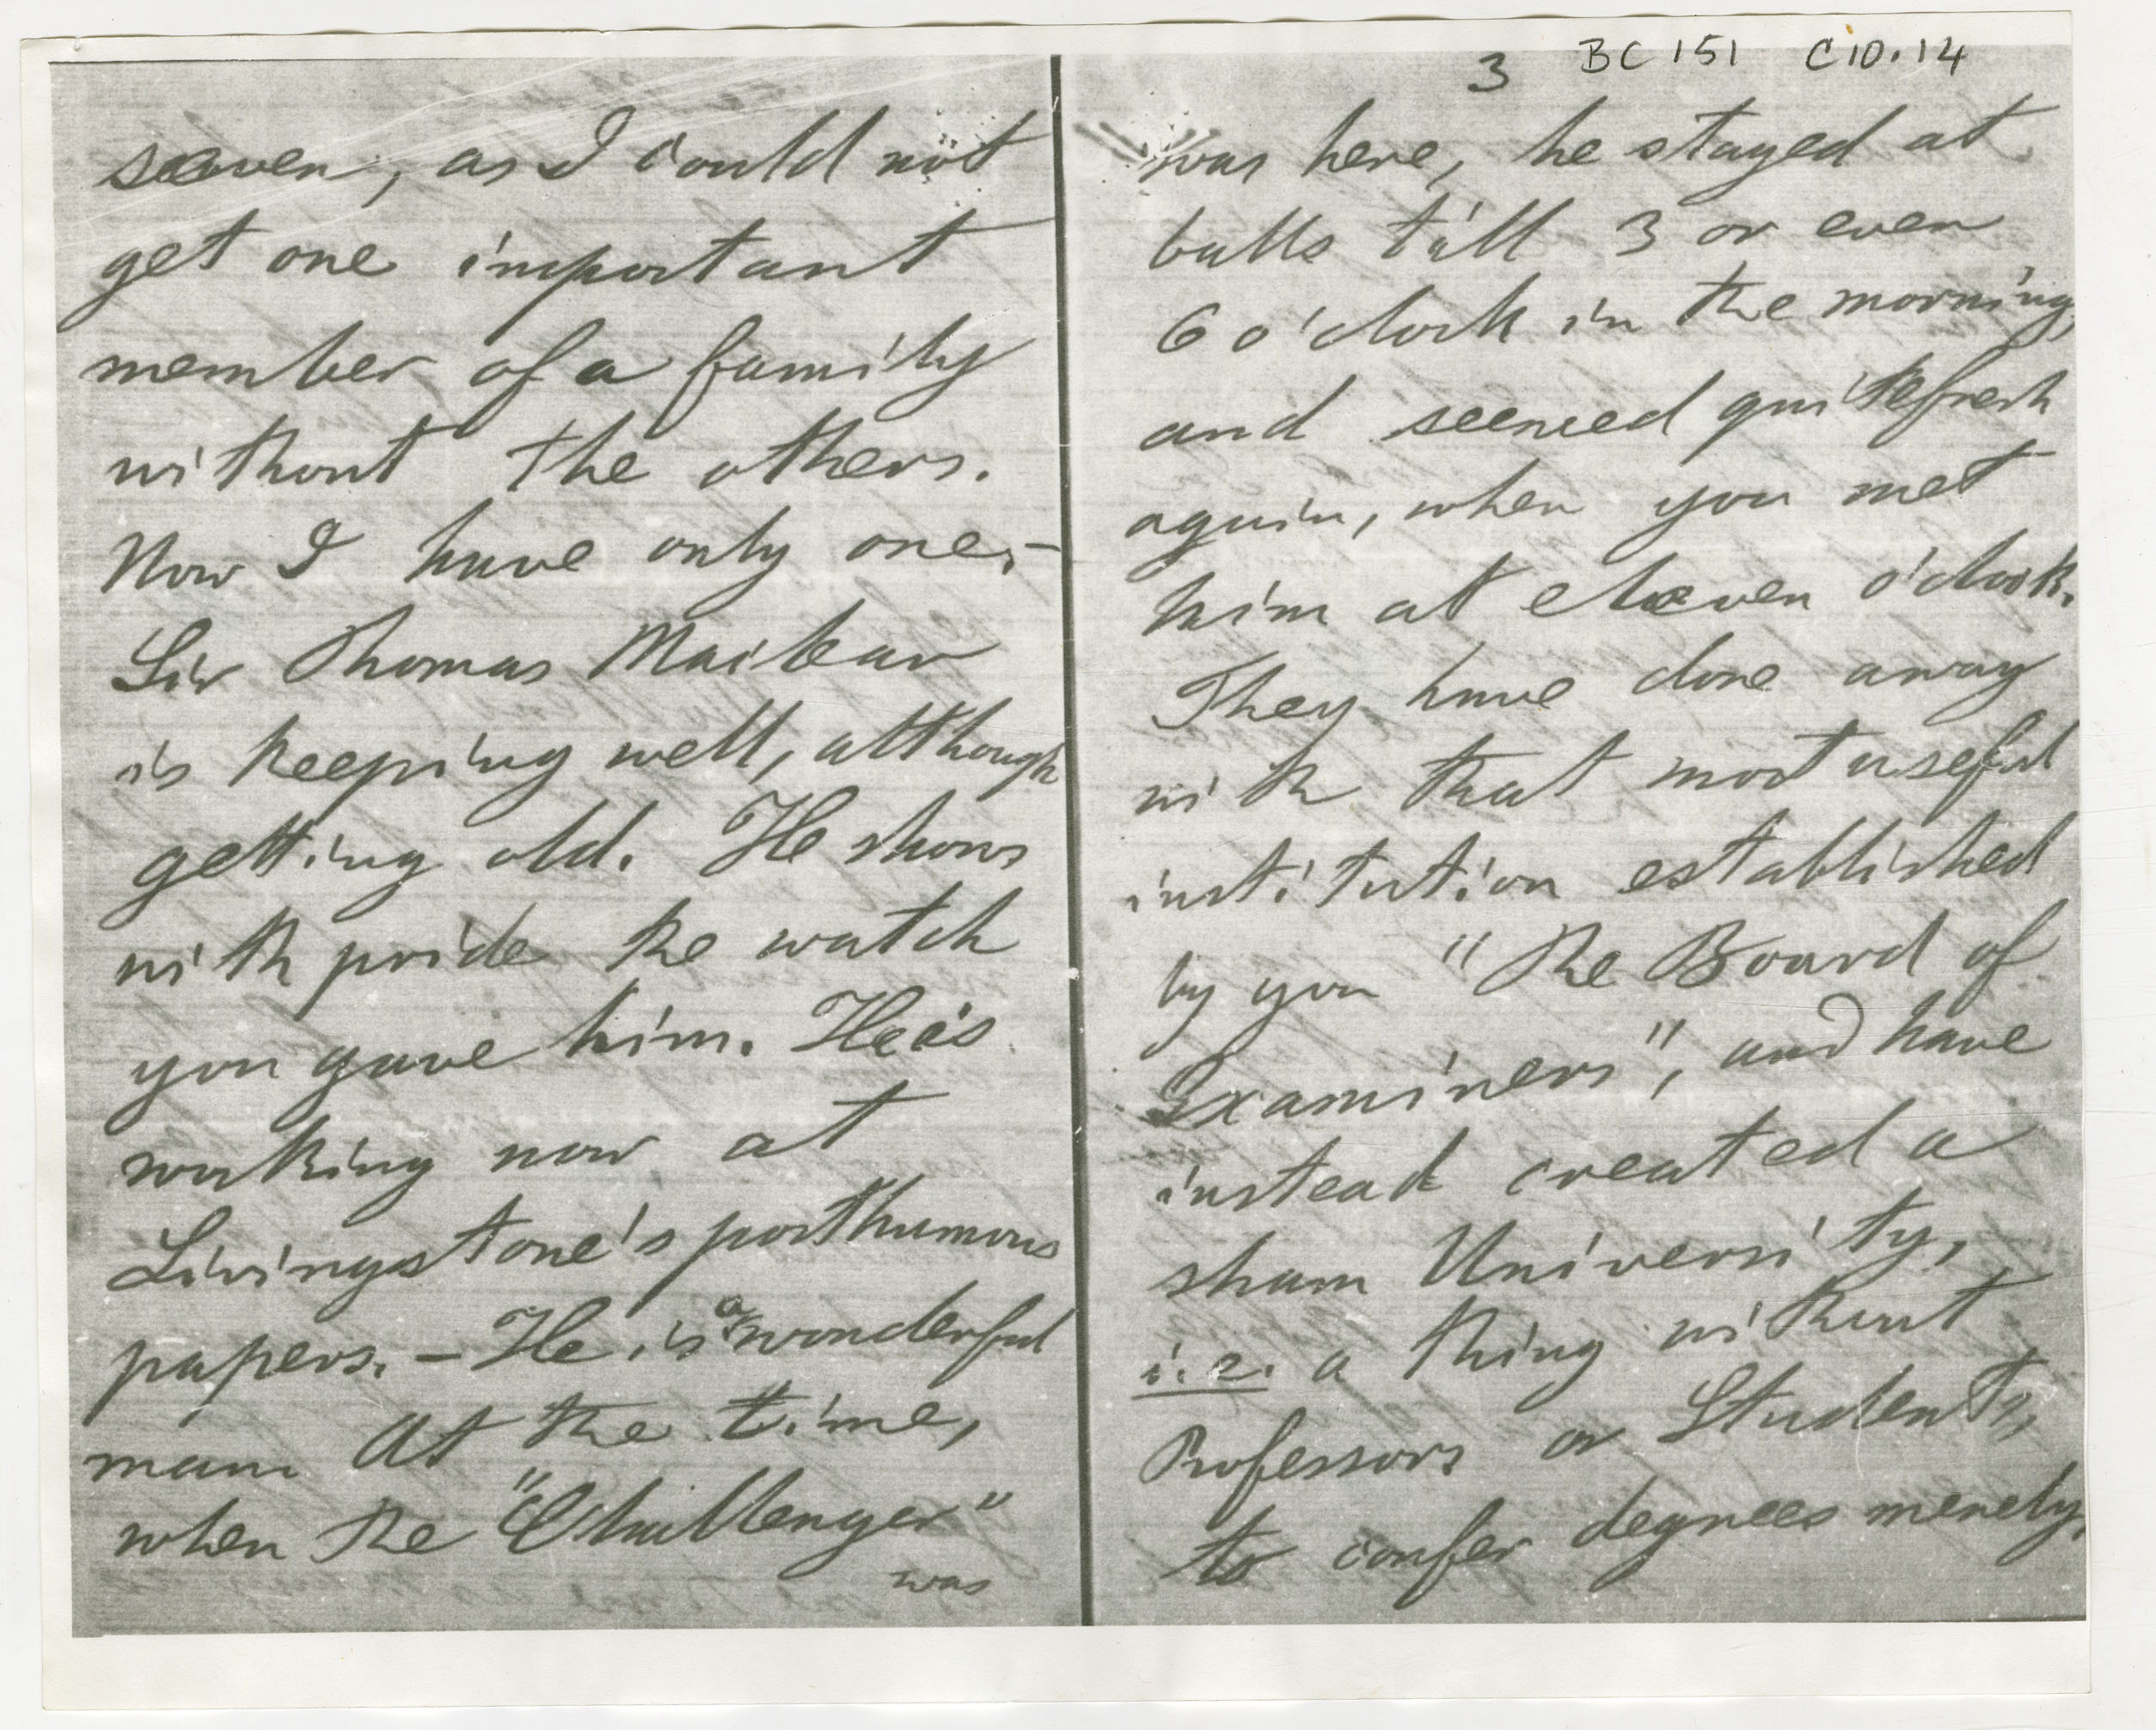 3 BC 151 C10.14
seven, as I could not
get one important
member of a family
without the others.
Now I have only one, -
Sir Thomas Maclear
is keeping well, although
getting old. He shows
with pride the watch
you gave him. He is
working now at
Livingstone's posthumous
papers. - He is a wonderful
man At the time,
when the "Challenger"
was
was here, he stayed at
balls till 3 or even
6 o'clock in the morning,
and seemed quite fresh
again, when you met
him at eleven o'clock.
They have done away
with that most useful
institution established
by you "the Board of
Examiners", and have
instead created a
sham University,
i.e. a thing without
Professors or Students,
to confer degrees merely.